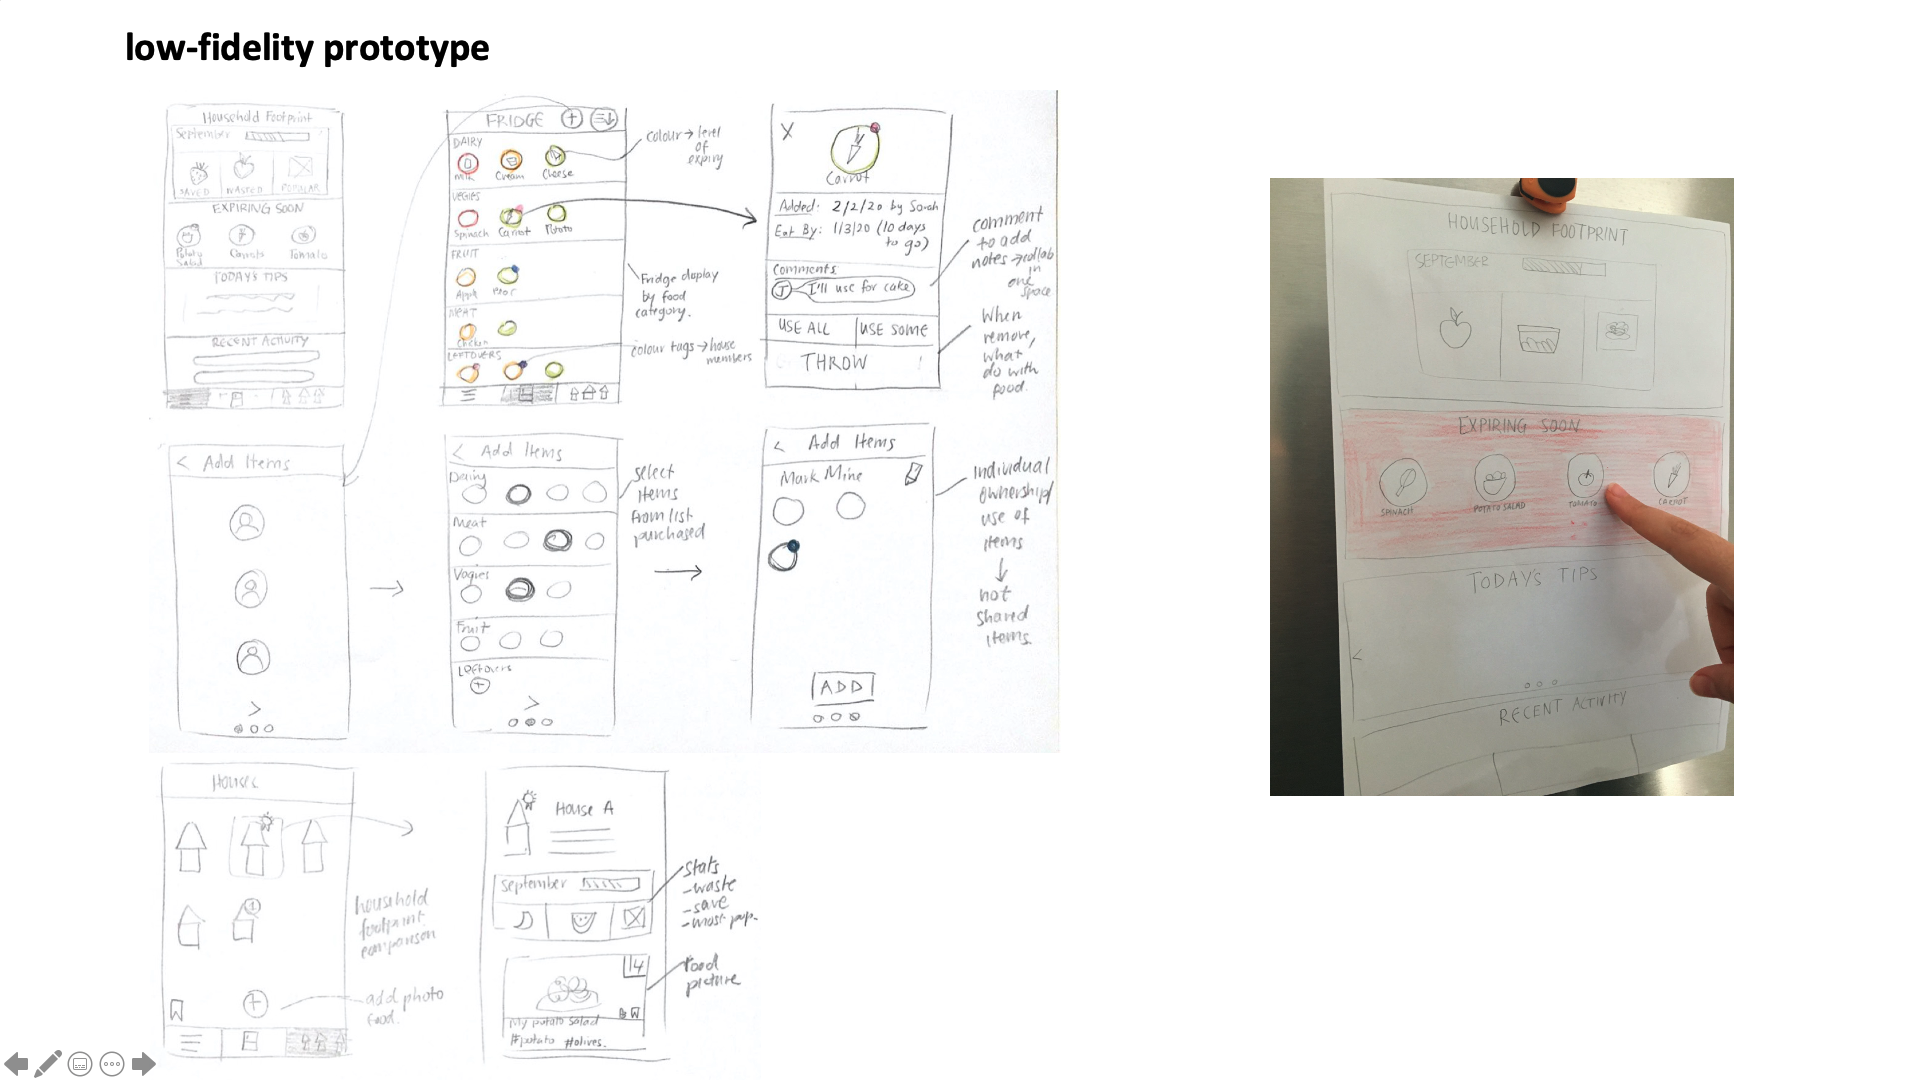 low-fidelity prototype
Household Footprint
September
SAVED
WASTED
POPULAR
EXPIRING SOON
Potato
Salad
Carrots
Tomato
TODAY'S TIPS
RECENT ACTIVITY
FRIDGE
DAIRY
Milk
Cream
Cheese
VEGIES
Spinach
Carrot
Potato
FRUIT
Apple
MEAT
Chicken
LEFTOVERS
colour → level
of
expiry
Fridge display
by food
category.
colour tags → house
members
X
Carrot
Added: 2/2/20 by Sarah
Eat By: 1/3/20 (10 days
to go)
Comments
J I'll use for cake
USE ALL
USE SOME
THROW
comment
to add
notes → collab
in
one
space
When
remove,
what
do with
food.
< Add Items
>
< Add Items
Dairy
Meat
Vegies
Fruit
Leftovers
>
select
items
from list
purchased
< Add Items
Mark Mine
ADD
individual
ownership/
use of
items
↓
not
shared
items.
Houses
1
household
footprint
comparison
add photo
food.
House A
September
14
My potato salad
#potato #olives.
stats
-waste
-save
-most pop.
food
picture
HOUSEHOLD FOOTPRINT
SEPTEMBER
EXPIRING SOON
SPINACH
POTATO SALAD
TOMATO
CARROT
TODAY'S TIPS
<
RECENT ACTIVITY